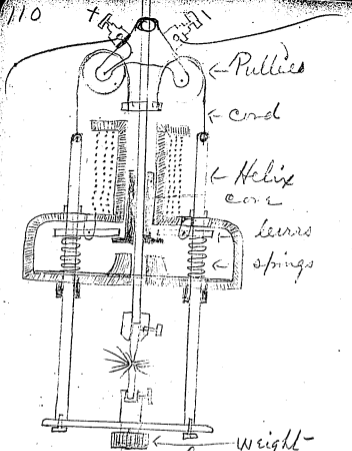 110
+
Pullies
cord
Helix
core
levrs
springs
weight